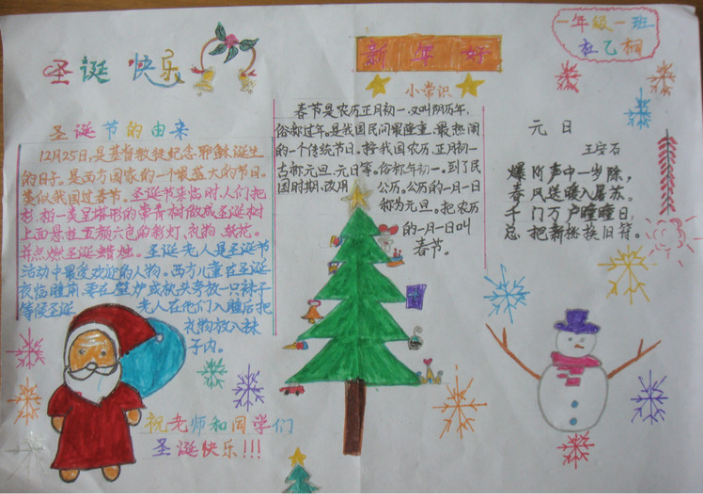 圣诞快乐
新年好
一年级一班
杜乙桐
小常识
圣诞节的由来
12月25日,是基督教徒纪念耶稣诞生
的日子。是西方国家的一个最盛大的节日。
类似我国过春节。圣诞节来临时,人们把
杉、松一类呈塔形的常青树做成圣诞树
上面悬挂五颜六色的彩灯、礼物、纸花。
并点燃圣诞蜡烛。圣诞老人是圣诞节
活动中最受欢迎的人物。西方儿童在圣诞
夜临睡前,要在壁炉或枕头旁放一只袜子
等侯圣诞 老人在他们入睡后把
礼物放入袜
子内。
春节是农历正月初一、又叫阴历年,
俗称过年。是我国民间最隆重、最热闹
的一个传统节日。按我国农历,正月初一
古称元旦、元日等。俗称年初一、到了民
国时期,改用 公历。公历的一月一日
称为元旦。把农历
的一月一日叫
春节。
元日
王安石
爆竹声中一岁除,
春风送暖入屠苏。
千门万户曈曈日,
总把新桃换旧符。
祝老师和同学们
圣诞快乐!!!